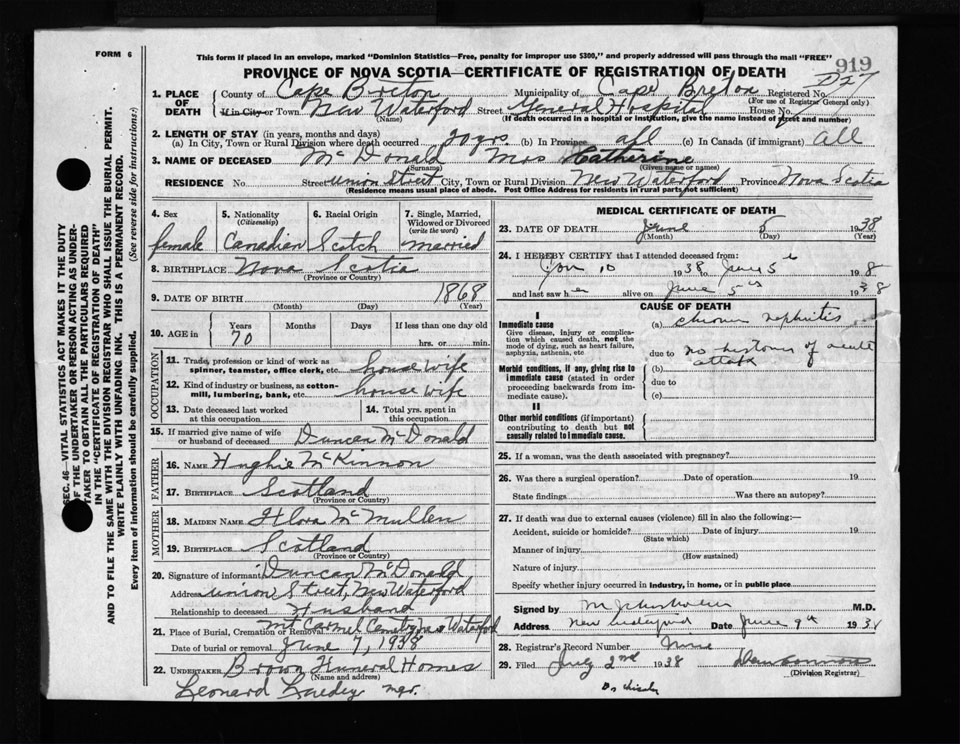 FORM 6
This form if placed in an envelope, marked "Dominion Statistics—Free, penalty for improper use $300," and properly addressed will pass through the mail "FREE"
919
PROVINCE OF NOVA SCOTIA—CERTIFICATE OF REGISTRATION OF DEATH
D27
1. PLACE OF DEATH
County of Cape Breton Municipality of Cape Breton Registered No.
(For use of Registrar General only)
If in City or Town New Waterford Street General Hospital House No.
(Name) (If death occurred in a hospital or institution, give the name instead of street and number)
2. LENGTH OF STAY (in years, months and days)
(a) In City, Town or Rural Division where death occurred 20 yrs. (b) In Province all (c) In Canada (if immigrant) All
3. NAME OF DECEASED McDonald Mrs Catherine
(Surname) (Given name or names)
RESIDENCE No. Street Union Street City, Town or Rural Division New Waterford Province Nova Scotia
(Residence means usual place of abode. Post Office Address for residents in rural parts not sufficient)
4. Sex 5. Nationality 6. Racial Origin 7. Single, Married, Widowed or Divorced
(Citizenship) (write the word)
female Canadian Scotch married
8. BIRTHPLACE Nova Scotia
(Province or Country)
9. DATE OF BIRTH 1868
(Month) (Day) (Year)
10. AGE in Years Months Days If less than one day old
70 hrs. or min.
OCCUPATION
11. Trade, profession or kind of work as spinner, teamster, office clerk, etc. house wife
12. Kind of industry or business, as cotton-mill, lumbering, bank, etc. house wife
13. Date deceased last worked at this occupation
14. Total yrs. spent in this occupation
15. If married give name of wife or husband of deceased Duncan McDonald
FATHER
16. NAME Hughie McKinnon
17. BIRTHPLACE Scotland
(Province or Country)
MOTHER
18. MAIDEN NAME Flora McMullen
19. BIRTHPLACE Scotland
(Province or Country)
20. Signature of informant Duncan McDonald
Address Union Street, New Waterford
Relationship to deceased Husband
21. Place of Burial, Cremation or Removal Mt Carmel Cemetry New Waterford
Date of burial or removal June 7, 1938
22. UNDERTAKER Brown Funeral Homes
(Name and address)
Leonard mgr.
MEDICAL CERTIFICATE OF DEATH
23. DATE OF DEATH June 5 1938
(Month) (Day) (Year)
24. I HEREBY CERTIFY that I attended deceased from:
Jan 10 1938 to June 5th 1938
and last saw her alive on June 5th 1938
CAUSE OF DEATH
I
Immediate cause
Give disease, injury or complication which caused death, not the mode of dying, such as heart failure, asphyxia, asthenia, etc
(a) chronic nephritis
due to no history of acute attack
Morbid conditions, if any, giving rise to immediate cause (stated in order proceeding backwards from immediate cause).
(b)
due to
(c)
II
Other morbid conditions (if important) contributing to death but not causally related to immediate cause.
25. If a woman, was the death associated with pregnancy?
26. Was there a surgical operation? Date of operation 19
State findings Was there an autopsy?
27. If death was due to external causes (violence) fill in also the following:—
Accident, suicide or homicide? Date of injury 19
(State which)
Manner of injury
(How sustained)
Nature of injury
Specify whether injury occurred in industry, in home, or in public place
Signed by M.D.
Address New Waterford Date June 9th 1938
28. Registrar's Record Number Nine
29. Filed July 2nd 1938
(Division Registrar)
SEC. 46—VITAL STATISTICS ACT MAKES IT THE DUTY
OF THE UNDERTAKER OR PERSON ACTING AS UNDER-
TAKER TO OBTAIN ALL THE PARTICULARS REQUIRED
IN THE "CERTIFICATE OF REGISTRATION OF DEATH"
AND TO FILE THE SAME WITH THE DIVISION REGISTRAR WHO SHALL ISSUE THE BURIAL PERMIT.
WRITE PLAINLY WITH UNFADING INK. THIS IS A PERMANENT RECORD.
Every item of information should be carefully supplied. (See reverse side for instructions)